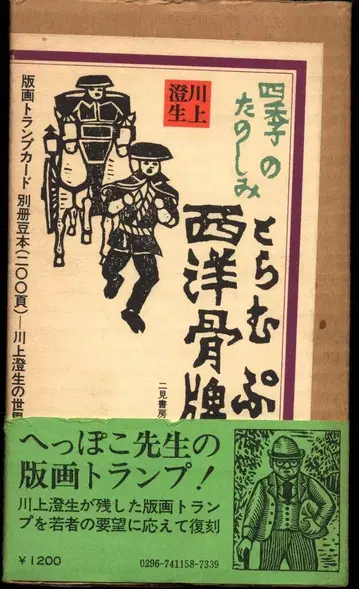 四季の
たのしみ
川上
澄生
とらむぷ
西洋骨牌
二見書房
版画トランプカード 別冊豆本(二〇〇頁)─川上澄生の世界
へっぽこ先生の
版画トランプ!
川上澄生が残した版画トラン
プを若者の要望に応えて復刻
¥1200
0296-741158-7339